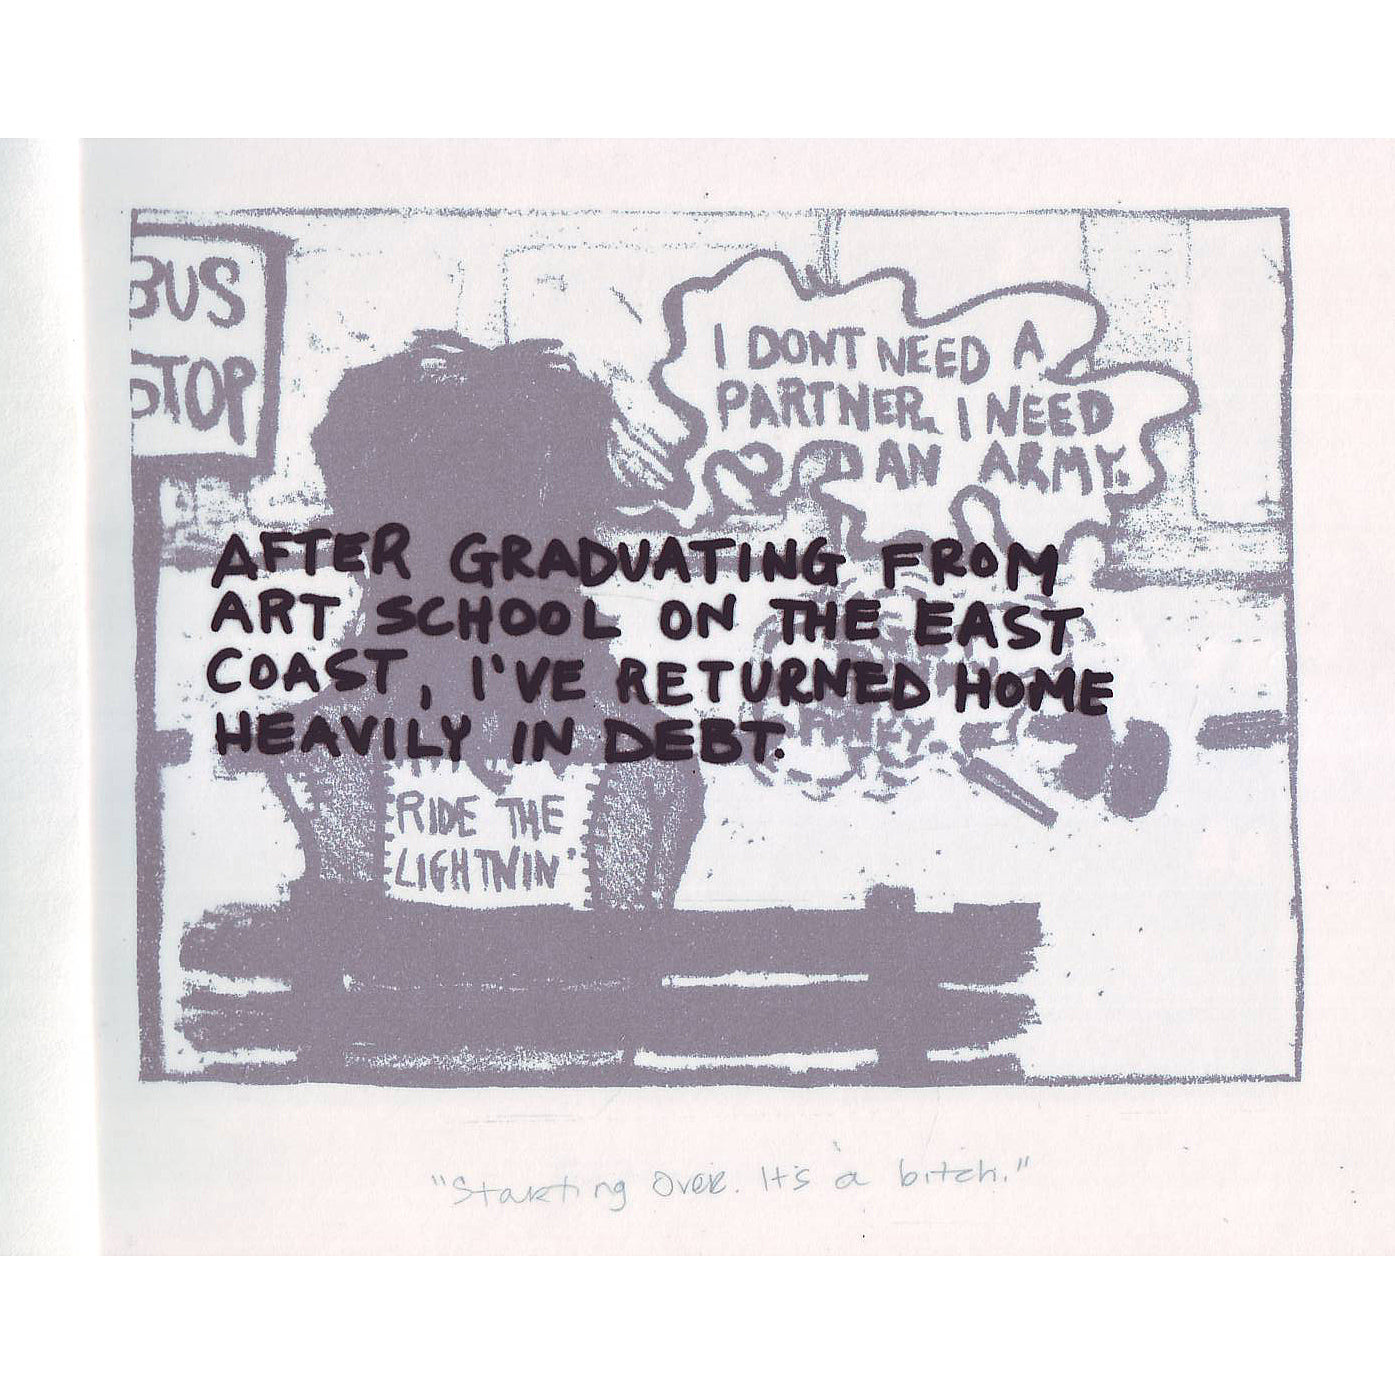 BUS
STOP
I DONT NEED A
PARTNER. I NEED
AN ARMY.
AFTER GRADUATING FROM
ART SCHOOL ON THE EAST
COAST, I'VE RETURNED HOME
HEAVILY IN DEBT.
RIDE THE
LIGHTNIN'
"Starting Over. It's a bitch."